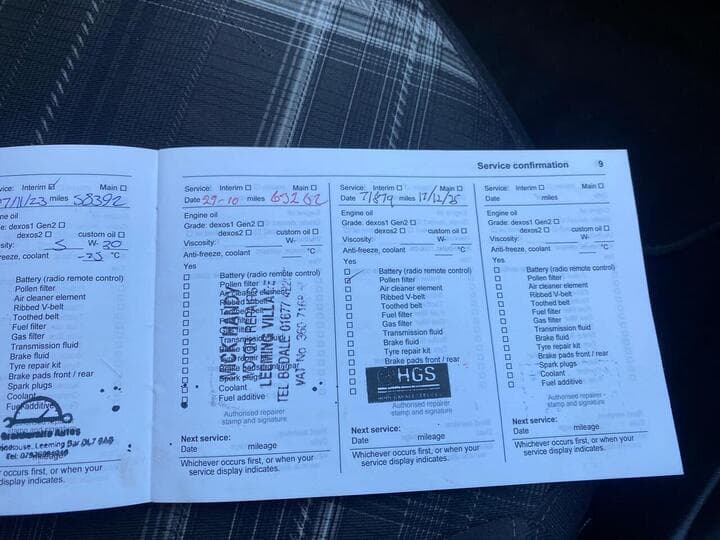 Service confirmation 9
vice: Interim ☑ Main ☐
7/11/23 miles 58392
ne oil
e: dexos1 Gen2 ☐
dexos2 ☐ custom oil ☐
sity: 5 W- 30
eeze, coolant -35 °C
Battery (radio remote control)
Pollen filter
Air cleaner element
Ribbed V-belt
Toothed belt
Fuel filter
Gas filter
Transmission fluid
Brake fluid
Tyre repair kit
Brake pads front / rear
Spark plugs
Coolant
Fuel additive
Autos
Leeming Bar DL7 9AB
Tel:
mileage
occurs first, or when your
display indicates.
Service: Interim ☐ Main ☐
Date 29-10 miles
Engine oil
Grade: dexos1 Gen2 ☐
dexos2 ☐ custom oil ☐
Viscosity: W-
Anti-freeze, coolant °C
Yes
☐ Battery (radio remote control)
☐ Pollen filter
☐ Air cleaner element
☐ Ribbed V-belt
☐ Toothed belt
☐ Fuel filter
☐ Gas filter
☐ Transmission fluid
☐ Brake fluid
☐ Tyre repair kit
☐ Brake pads front / rear
☐ Spark plugs
☐ Coolant
☐ Fuel additive
HARDY
LEEMING VILLAGE
TEL BEDALE 01677
VAT No. 360
Authorised repairer
stamp and signature
Next service:
Date mileage
Whichever occurs first, or when your
service display indicates.
Service: Interim ☐ Main ☐
Date 71879 miles 17/12/25
Engine oil
Grade: dexos1 Gen2 ☐
dexos2 ☐ custom oil ☐
Viscosity: W-
Anti-freeze, coolant °C
Yes
☐ Battery (radio remote control)
☑ Pollen filter
☐ Air cleaner element
☐ Ribbed V-belt
☐ Toothed belt
☐ Fuel filter
☐ Gas filter
☐ Transmission fluid
☐ Brake fluid
☐ Tyre repair kit
☐ Brake pads front / rear
HGS
Authorised repairer
stamp and signature
Next service:
Date mileage
Whichever occurs first, or when your
service display indicates.
Service: Interim ☐ Main ☐
Date miles
Engine oil
Grade: dexos1 Gen2 ☐
dexos2 ☐ custom oil ☐
Viscosity: W-
Anti-freeze, coolant °C
Yes
☐ Battery (radio remote control)
☐ Pollen filter
☐ Air cleaner element
☐ Ribbed V-belt
☐ Toothed belt
☐ Fuel filter
☐ Gas filter
☐ Transmission fluid
☐ Brake fluid
☐ Tyre repair kit
☐ Brake pads front / rear
☐ Spark plugs
☐ Coolant
☐ Fuel additive
Authorised repairer
stamp and signature
Next service:
Date mileage
Whichever occurs first, or when your
service display indicates.